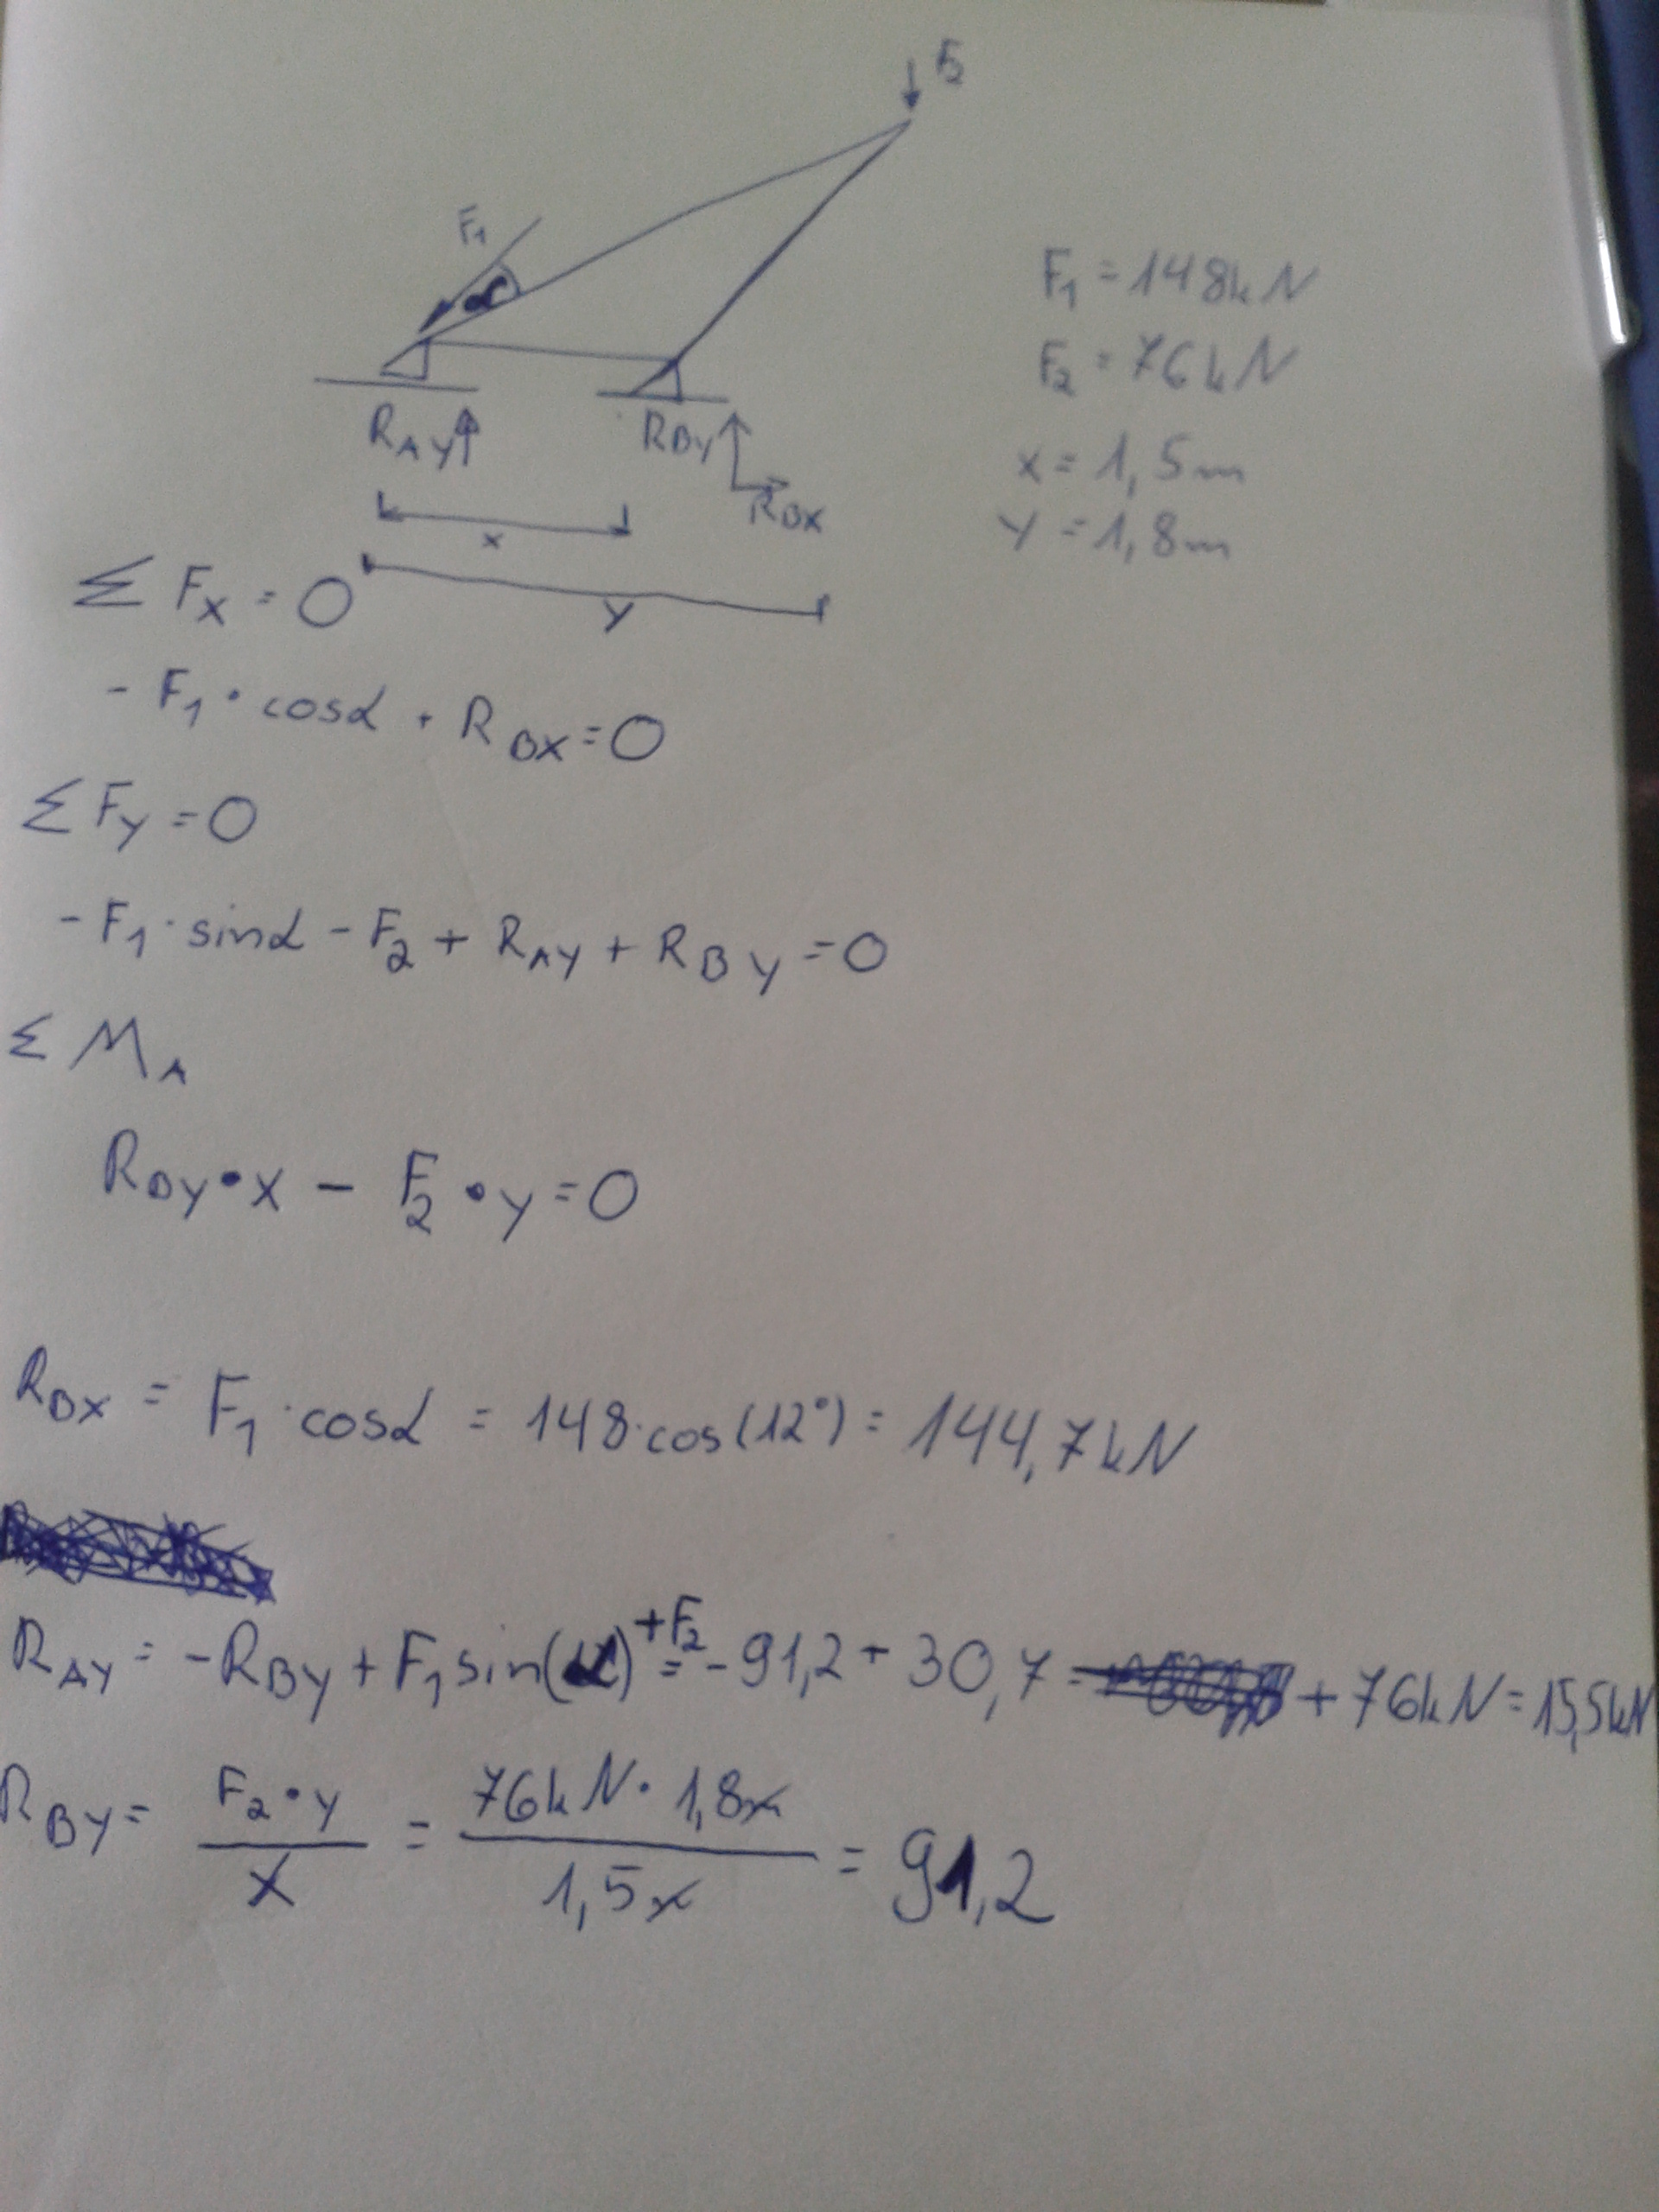 F2
F1
α
F1 = 148kN
F2 = 76kN
RAY
RBY
RBX
x = 1,5m
x
y = 1,8m
y
Σ Fx = 0
- F1 · cosα + RBX = 0
Σ Fy = 0
- F1 · sinα - F2 + RAY + RBY = 0
Σ MA
RBY · x - F2 · y = 0
RBX = F1 · cosα = 148 · cos(12°) = 144,7kN
RAY = -RBY + F1 sin(α) +F2 = -91,2 + 30,7 + 76kN = 15,5kN
RBY = F2 · y / x = 76kN · 1,8m / 1,5m = 91,2